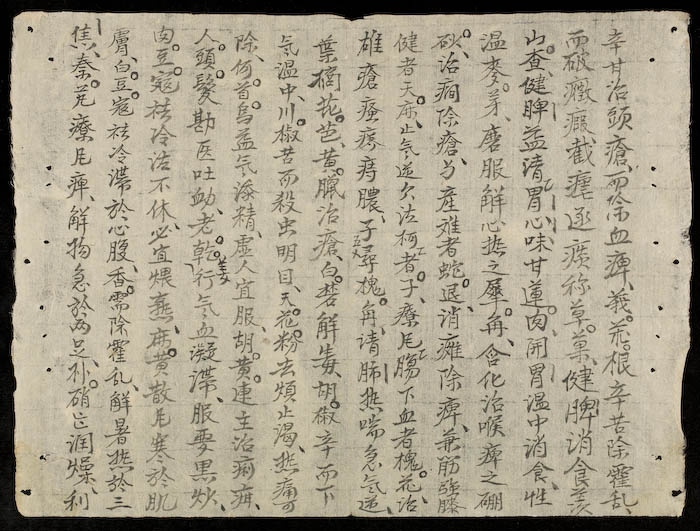 辛甘治頭瘡而除血痺莪朮根辛苦除霍乱
而破癥瘕截瘧逐痰称草菓健脾消食
山查健脾益清胃心味甘蓮肉開胃温中消食性
温麥芽磨服解心热之犀角含化治喉痺之硼
砂治痾除瘡易産难者蛇退消癰除痺兼筋強藤
健者天麻止气逆久泣柯者子療尾腸下血者槐花治
雄瘡蚤疼痔膿子尋槐角清肺热喘急气逆
葉摘芭黄臘治瘡白苦解毒胡椒辛而下
气温中川椒苦而殺虫明目天花粉去煩止渴热痛可
除何首烏益气添精虚人宜服胡黄連主治痢疳
人頭髮勘医吐血老乾姜行气血凝滞服要黒炒
肉豆蔻祛冷活不休必宜煨麻黄散尾寒於肌
膚白豆蔻祛冷滯於心腹香需除霍乱解暑热於三
焦秦艽療尾痺解拘急於両足朴硝亡潤燥利